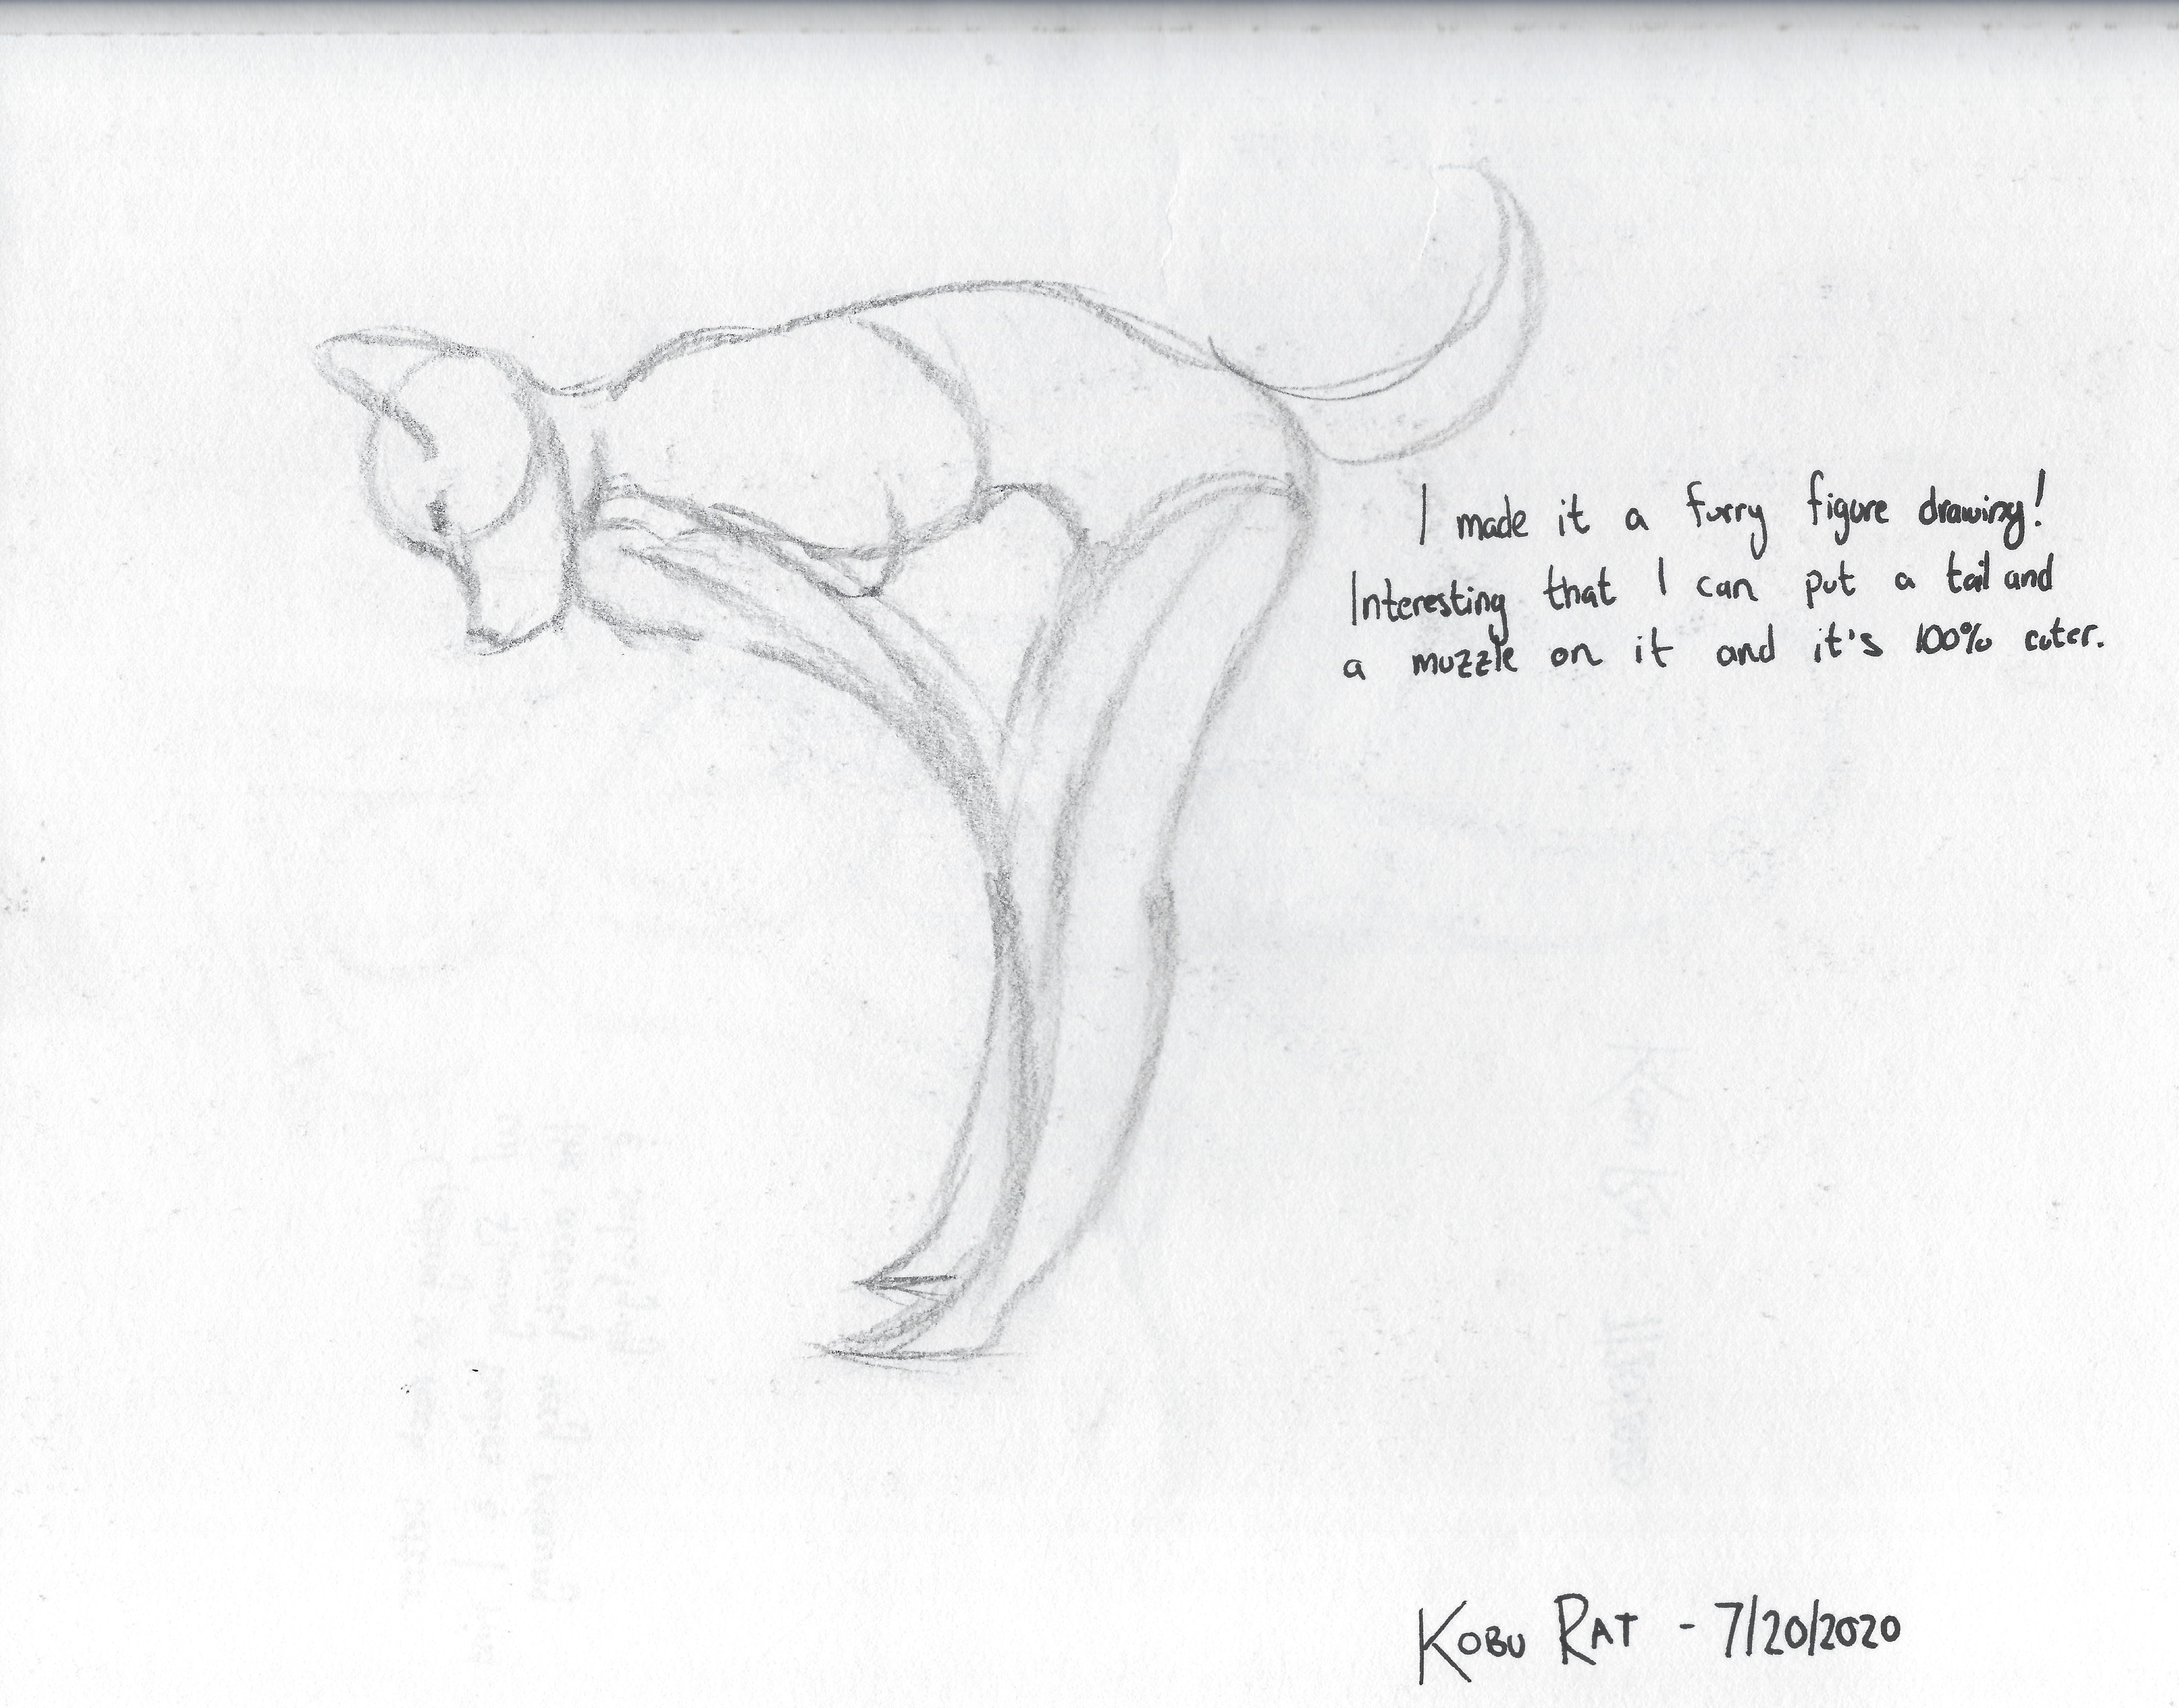 I made it a furry figure drawing!
Interesting that I can put a tail and
a muzzle on it and it's 100% cuter.
KOBU RAT - 7/20/2020